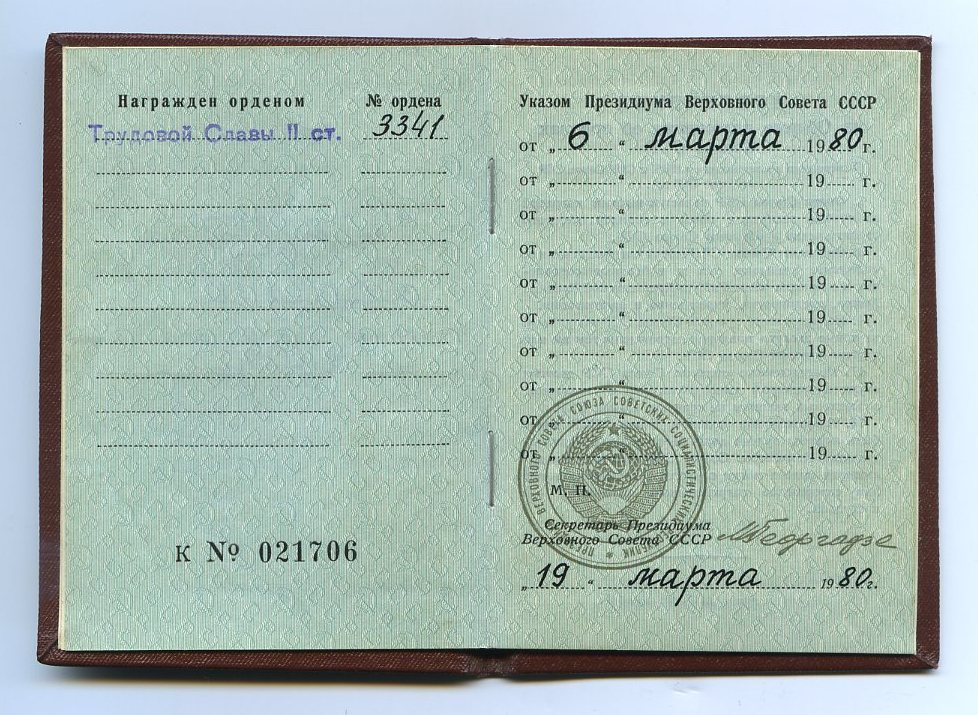 Награжден орденом
№ ордена
Трудовой Славы II ст.
3341
К № 021706
Указом Президиума Верховного Совета СССР
от „ 6 “ марта 1980 г.
от „ “ 19 г.
от „ “ 19 г.
от „ “ 19 г.
от „ “ 19 г.
от „ “ 19 г.
от „ “ 19 г.
от „ “ 19 г.
от „ “ 19 г.
от „ “ 19 г.
ВЕРХОВНОГО СОВЕТА СОЮЗА СОВЕТСКИХ СОЦИАЛИСТИЧЕСКИХ
М. П.
Секретарь Президиума
Верховного Совета СССР
МГеоргадзе
„ 19 “ марта 1980 г.